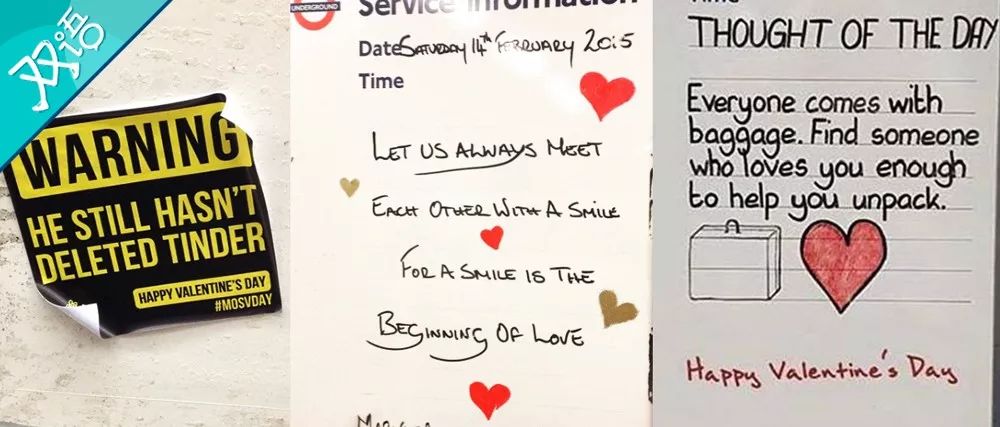 双语
WARNING
HE STILL HASN'T
DELETED TINDER
HAPPY VALENTINE'S DAY
#MOSVDAY
UNDERGROUND
Service Information
Date SATURDAY 14th FEBRUARY 2015
Time
LET US ALWAYS MEET
EACH OTHER WITH A SMILE
FOR A SMILE IS THE
BEGINNING OF LOVE
Time
THOUGHT OF THE DAY
Everyone comes with
baggage. Find someone
who loves you enough
to help you unpack.
Happy Valentine's Day